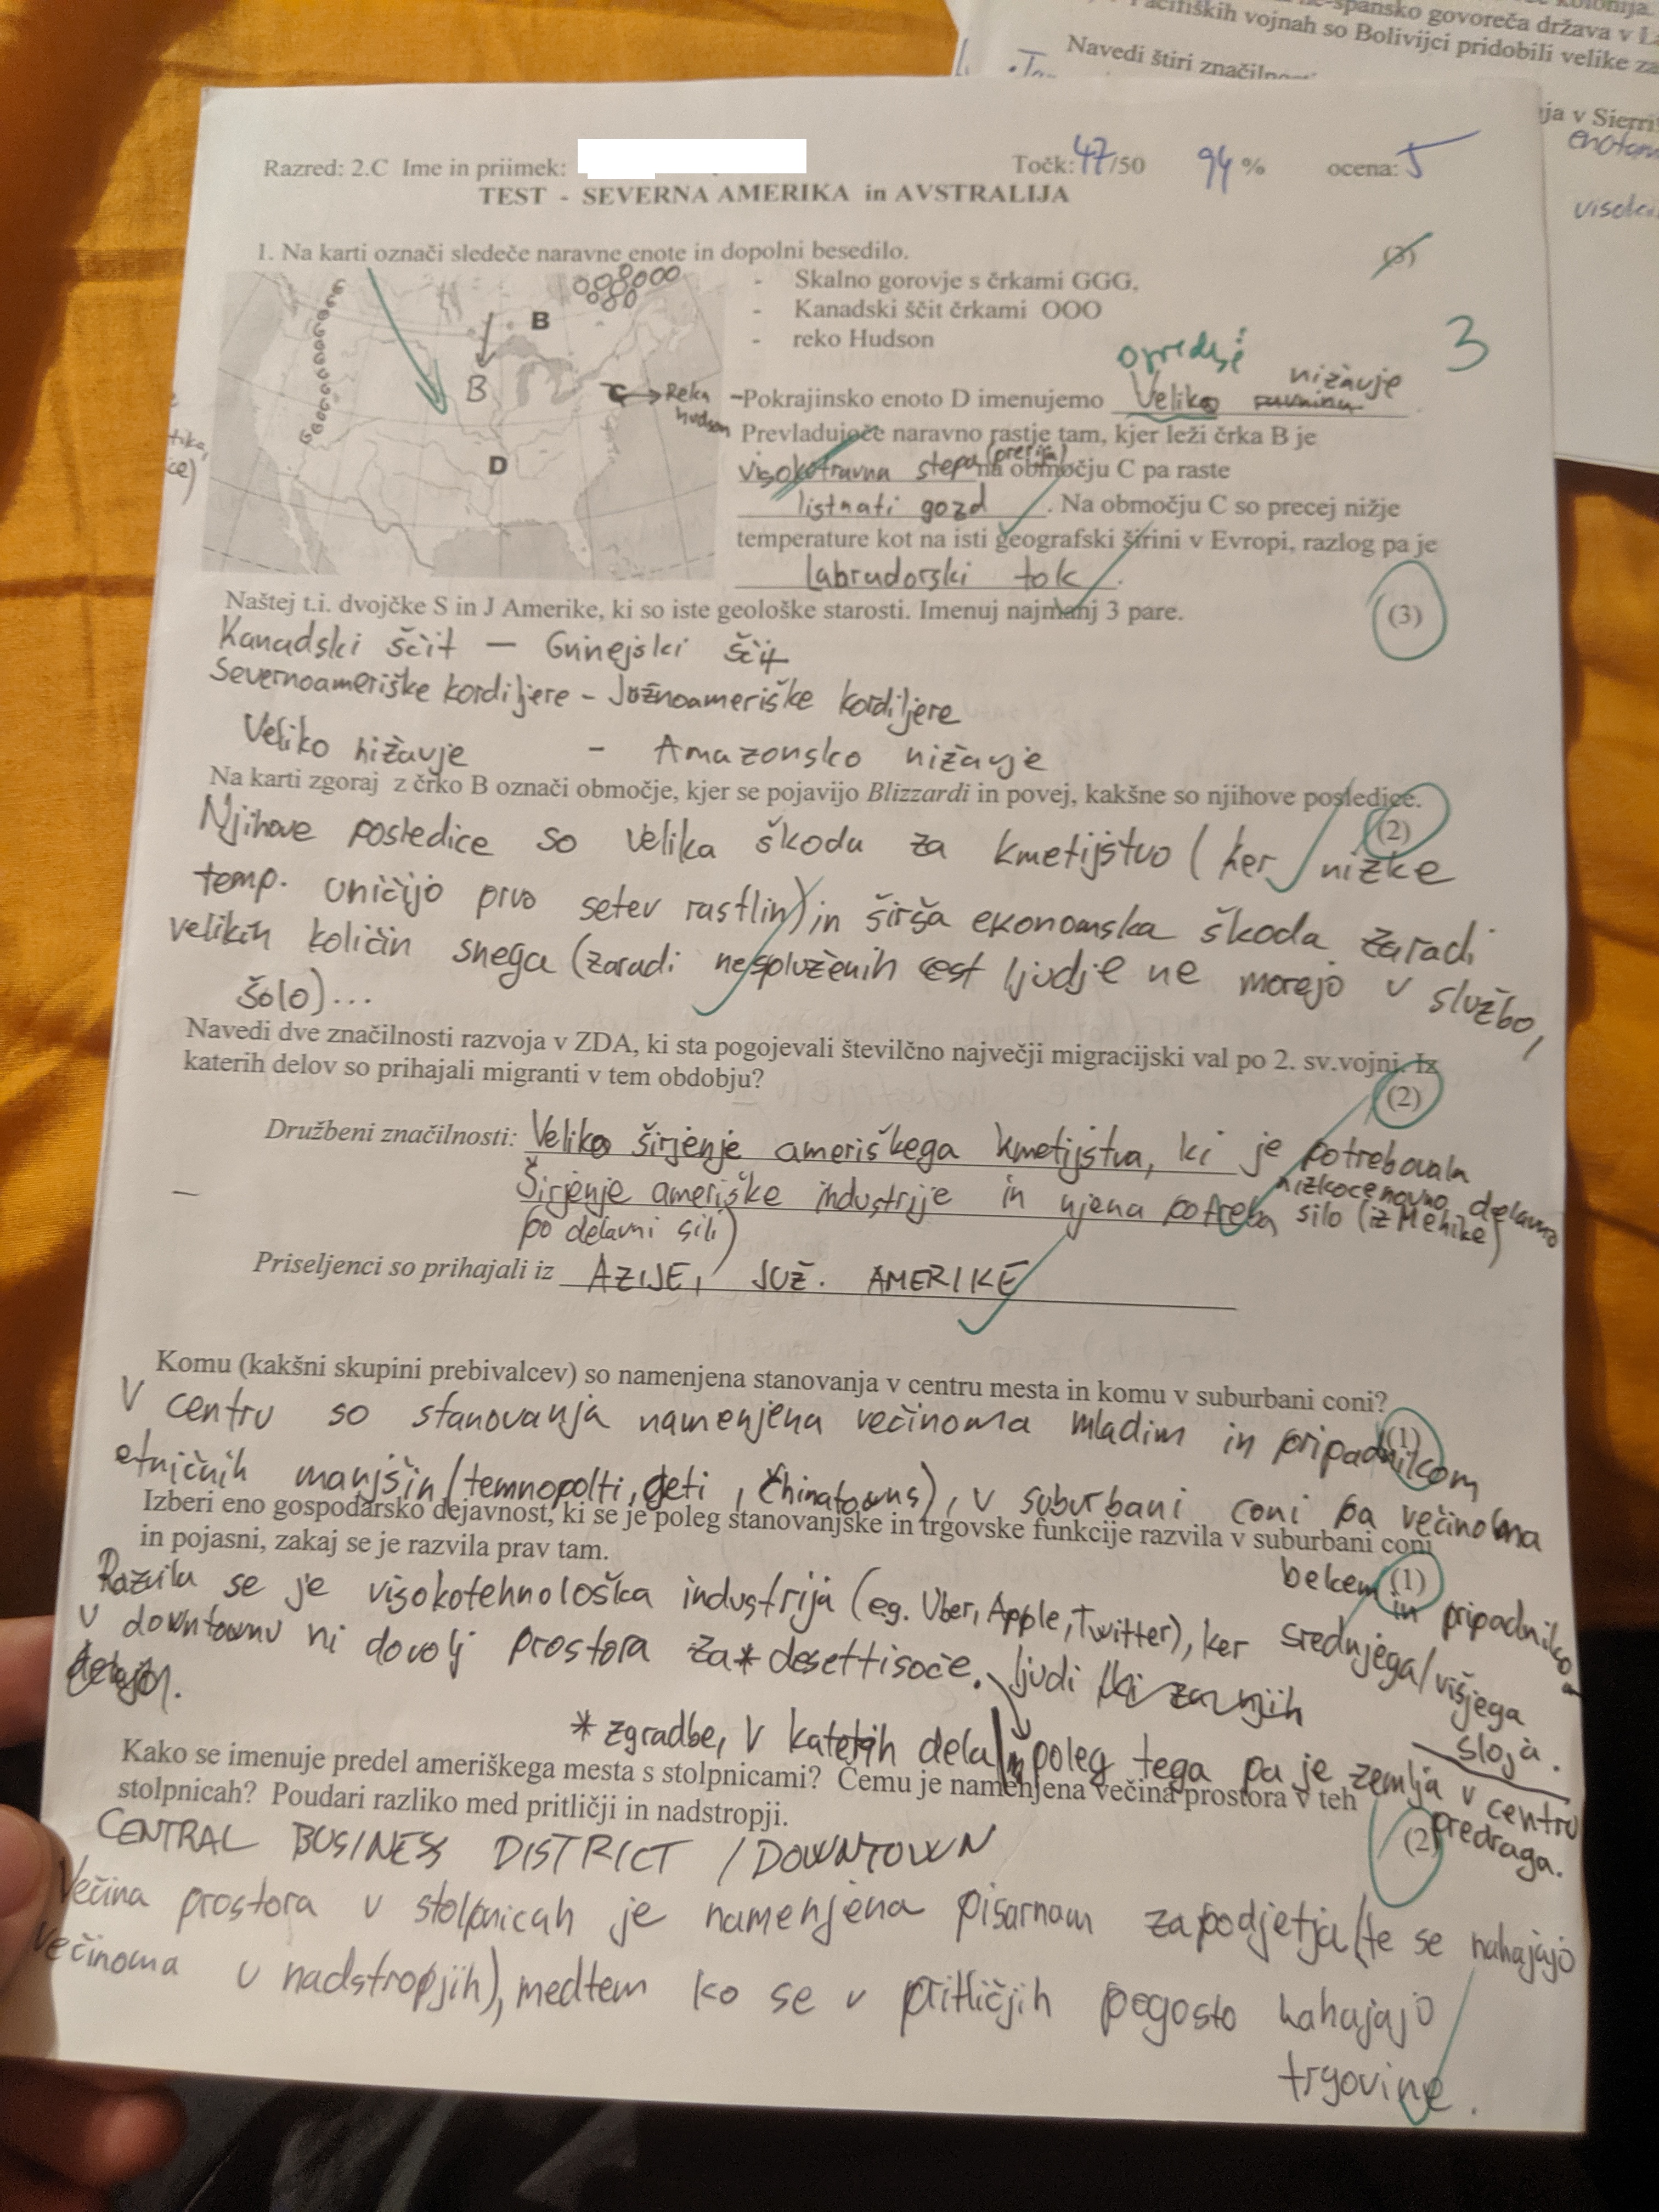 spansko govoreča država v
vojnah so Bolivijci pridobili velike
Navedi štiri
ja v
Razred: 2.C Ime in priimek:
Točk: 47/50 94 % ocena: 5
TEST - SEVERNA AMERIKA in AVSTRALIJA
1. Na karti označi sledeče naravne enote in dopolni besedilo.
(3)
- Skalno gorovje s črkami GGG,
- Kanadski ščit črkami OOO
- reko Hudson
3
B
B
C
D
Reka
Hudson
nižavje
-Pokrajinsko enoto D imenujemo Veliko
Prevladujoče naravno rastje tam, kjer leži črka B je
visokotravna stepa (prerija) na območju C pa raste
listnati gozd . Na območju C so precej nižje
temperature kot na isti geografski širini v Evropi, razlog pa je
labradorski tok .
Naštej t.i. dvojčke S in J Amerike, ki so iste geološke starosti. Imenuj najmanj 3 pare. (3)
Kanadski ščit — Gvinejski ščit
Severnoameriške kordiljere - Južnoameriške kordiljere
Veliko nižavje - Amazonsko nižavje
Na karti zgoraj z črko B označi območje, kjer se pojavijo Blizzardi in povej, kakšne so njihove posledice.
(2)
Njihove posledice so velika škoda za kmetijstvo (ker nizke
temp. uničijo prvo setev rastlin) in širša ekonomska škoda zaradi
velikih količin snega (zaradi nespluženih cest ljudje ne morejo v službo,
šolo)...
Navedi dve značilnosti razvoja v ZDA, ki sta pogojevali številčno največji migracijski val po 2. sv.vojni. Iz
katerih delov so prihajali migranti v tem obdobju? (2)
Družbeni značilnosti: Veliko širjenje ameriškega kmetijstva, ki je potrebovala
nizkocenovno delavno
silo (iz Mehike)
Širjenje ameriške industrije in njena potreba
(po delavni sili)
Priseljenci so prihajali iz AZIJE, JUŽ. AMERIKE
Komu (kakšni skupini prebivalcev) so namenjena stanovanja v centru mesta in komu v suburbani coni?
(1)
V centru so stanovanja namenjena večinoma mladim in pripadnikom
etničnih manjšin (temnopolti, geti, Chinatowns), v suburbani coni pa večinoma
belcem in pripadnikom
srednjega/višjega
sloja.
Izberi eno gospodarsko dejavnost, ki se je poleg stanovanjske in trgovske funkcije razvila v suburbani coni
in pojasni, zakaj se je razvila prav tam. (1)
Razvila se je visokotehnološka industrija (eg. Uber, Apple, Twitter), ker
v downtownu ni dovolj prostora za* desettisoče ljudi
* zgradbe, v katerih dela
poleg tega pa je zemlja v centru
predraga.
Kako se imenuje predel ameriškega mesta s stolpnicami? Čemu je namenjena večina prostora v teh
stolpnicah? Poudari razliko med pritličji in nadstropji. (2)
CENTRAL BUSINESS DISTRICT / DOWNTOWN
Večina prostora v stolpnicah je namenjena pisarnam za podjetja (te se nahajajo
večinoma v nadstropjih), medtem ko se v pritličjih pogosto nahajajo
trgovine.